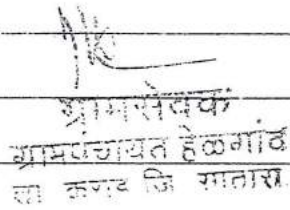 ग्रामसेवक
ग्रामपंचायत हेळगांव
ता कराड जि सातारा.